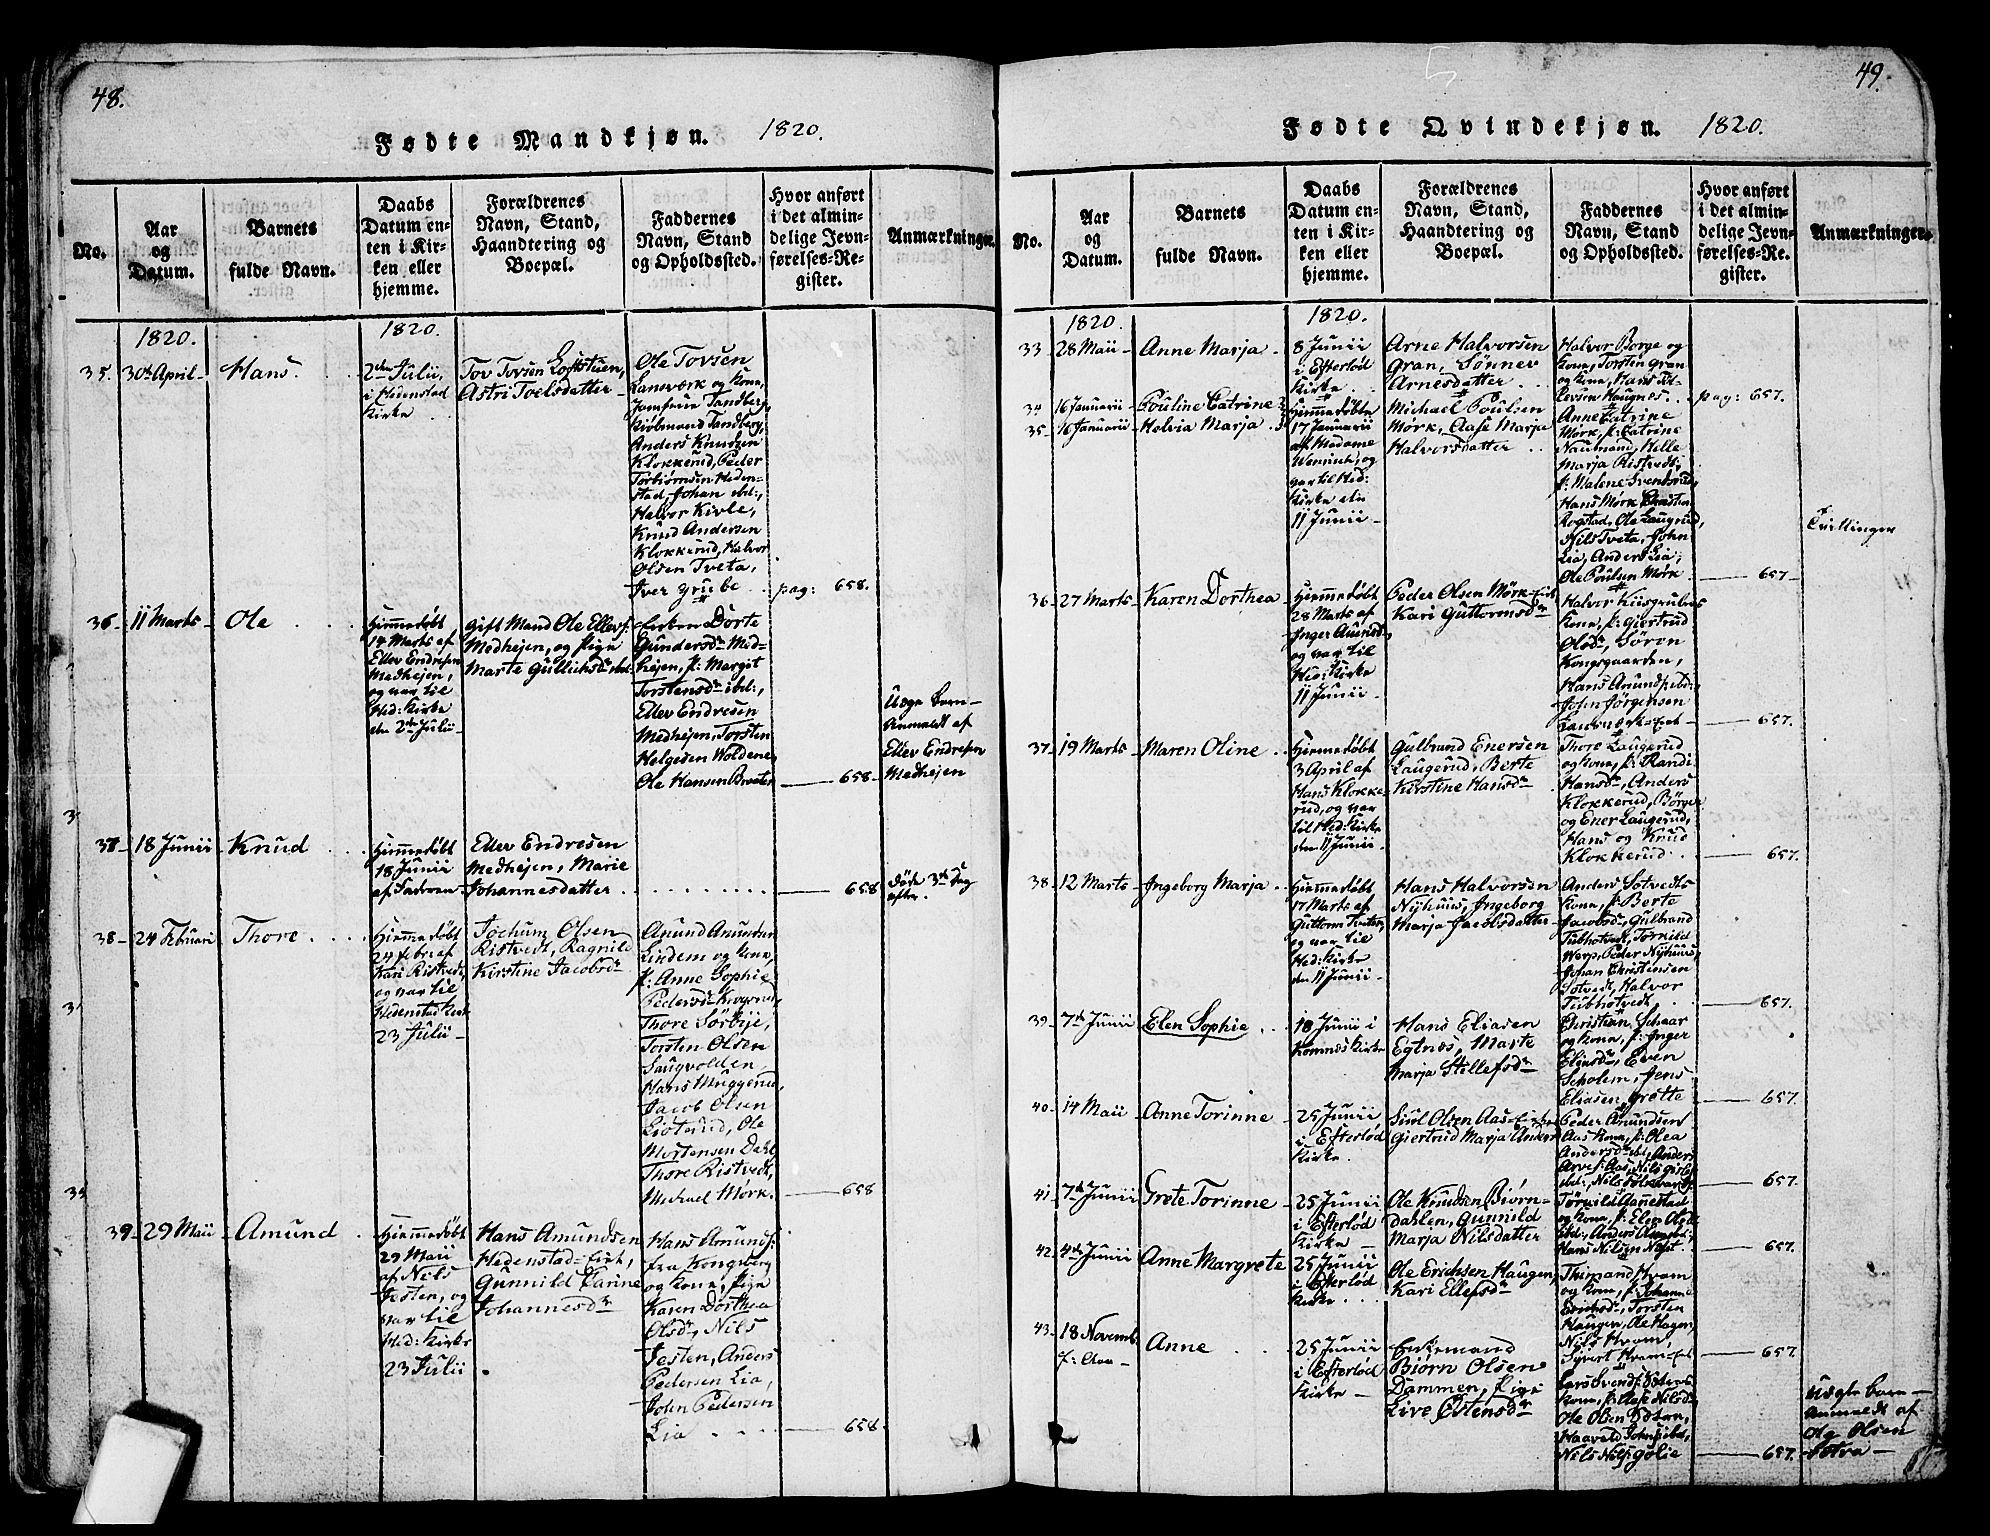 48.
Fødte Mandkjøn. 1820.
No.
Aar
og
Datum.
Barnets
fulde Navn.
Daabs
Datum en-
ten i Kir-
ken eller
hjemme.
Forældrenes
Navn, Stand,
Haandtering og
Boepæl.
Faddernes
Navn, Stand
og Opholdssted.
Hvor anført
i det almin-
delige Jevn-
førelses-Re-
gister.
Anmærkninger.
1820.
1820.
35. 30te April
Hans
2den Julii,
i Hedenstad
Kirke
Tov Tovsen Loftstuen,
Astri Toelsdatter
Ole Tovsen
Lansverk og Kone,
Jomfrue Tandberg,
Kirkemand Tandberg,
Anders Knudsen
Klokkerud, Peder
Torbiørnsen Heden-
stad, Johan ibd:,
Halvor Kivle,
Knud Andersen
Klokkerud, Halvor
Olsen Tveta,
Iver Grube
pag: 658.
36 11 Marts
Ole
Hiemmedøbt
14 Marts af
Ellev Endresen
Medhejen,
og var til
Hed: Kirke
den 2de Julii
Gift Mand Ole Ellevs:
Medhejen, og Pige
Marte Gullichsdr ibd.
Enken Dorte
Gundersdr Med-
hejen, p: Margit
Torstensdr ibd:,
Ellev Endresen
Medhejen, Torsten
Helgesen Woldene,
Ole Hansen Braaten
658
Uægte Barn
Anmeldt af
Ellev Endresen
Medhejen
37 18 Junii
Knud
Hiemmedøbt
18 Junii
af Faderen
Ellev Endresen
Medhejen, Marie
Johannesdatter
658
Døde 3de Dag
efter.
38 24 Februari
Thore
Hiemmedøbt
24 Febr: af
Kari Ristvedt,
og var til
Hedenstad Kirke
23 Julii
Jochum Olsen
Ristvedt, Ragnild
Kirstine Jacobsdr
Anund Anundsen
Lindem og Kone,
p: Anne Sophie
Pedersdr
Thore Sørbye,
Torsten Olsen
Saugvolden
Hans Muggerud,
Jacob Olsen
Liøterud, Ole
Mortensen Dahl,
Thore Ristvedt,
Michael Mørk.
658
39 29 Maii
Amund
Hiemmedøbt
29 Maii
af Nils
Jesten, og
var til
Hed: Kirke
23 Julii
Hans Amundsen
Hedenstad-Eie,
Gunnild Karine
Johannesdr
Hans Amunds:
fra Kongsberg
og Kone, Pige
Karen Dorthea
Olsdr, Nils
Jesten, Anders
Pedersen Lia,
John Pedersen
Lia
658.
49.
Fødte Qvindekjøn. 1820.
No.
Aar
og
Datum.
Barnets
fulde Navn.
Daabs
Datum en-
ten i Kir-
ken eller
hjemme.
Forældrenes
Navn, Stand,
Haandtering og
Boepæl.
Faddernes
Navn, Stand
og Opholdssted.
Hvor anført
i det almin-
delige Jevn-
førelses-Re-
gister.
Anmærkninger.
1820.
1820.
33 28 Maii
Anne Marja
8 Junii
i Efterlød
Kirke
Arne Halvorsen
Gran, Sønnev
Arnesdatter
Halvor Borge og
Kone, Torsten Gran
og Kone, Hans
Haugnes
pag: 657.
34 16 Januarii
Pouline Catrine
35 16 Januarii
Helvia Marja
Hiemmedøbte
17 Januarii
af Madame
og
var til Hed:
Kirke den
11 Junii
Michael Poulsen
Mørk, Aase Marja
Halvorsdatter
Anne Catrine
Mørk, p: Catrine
Naumand, Helle
Marja Ristvedt,
p: Malene Svendsrud,
Hans Mørk
Rogstad, Ole Laugerud,
Nils Tveta, John
Lia, Anders Lia,
Ole Poulsen Mørk
657
Tvillinger
36 27 Marts
Karen Dorthea
Hiemmedøbt
28 Marts af
Inger Amunds,
og var til
Hed: Kirke
11 Junii
Peder Olsen Mørk-Eie,
Kari Guttormsdr
Halvor Kiisgrubes
Kone, p: Giertrud
Olsdr, Søren
Kongsgaarden,
Hans Anunds: ibd:
John Jørgensen
Landsverk-Eiet
657.
37 19 Marts
Maren Oline
Hiemmedøbt
3 April af
Hans Klokke-
rud, og var
til Hed: Kirke
den 11 Junii
Gulbrand Enersen
Laugerud, Berte
Kirstine Hansdr
Thore Laugerud
og Kone, p: Randi
Hansdr, Anders
Klokkerud, Børger
og Ener Laugerud,
Hans og Knud
Klokkerud
657.
38 12 Marts
Ingeborg Marja
Hiemmedøbt
17 Marts af
Guttorm Tveten,
og var til
Hed: Kirke
den 11 Junii
Hans Halvorsen
Nyhuus, Ingeborg
Marja Jacobsdatter
Anders Sotvedts
Kone, p: Berte
Jacobsdr, Gulbrand
Tubhotvedt, Torkild
Werp, Peder Nyhuus,
Johan Christensen
Sotvedt, Halvor
Tubhotvedt,
657.
39 7de Junii
Elen Sophie
18 Junii i
Komnæs Kirke
Hans Eliasen
Egtnæs, Marte
Marja Stillefsdr
Christian Schaar
og Kone, p: Inger
Eliasdr, Even
Scholem, Jens
Eliasen Grøtte
657.
40 14 Maii
Anne Torinne
25 Junii
i Efterlød
Kirke
Siul Olsen Aas-Eiet
Giertrud Marja Andersdr
Peder Anundsen
Aas Kone, p: Olea
Andersdr ibd, Anders
657
41 7de Junii
Grete Torinne
25 Junii
i Efterlød
Kirke
Ole Knudsen Biørn-
dahlen, Gunnild
Marja Nilsdatter
Tørkild Aannestad
og Kone, p: Elen Olsdr
ibd:, Anders Aannest:
Hans Nilsen
657.
42 4de Junii
Anne Margrete
25 Junii
i Efterlød
Kirke
Ole Erichsen Haugen,
Kari Ellefsdr
Thimand Hvam
og Kone, p: Johanne
Erichsdr, Torsten
Haugen, Ole Hagen,
Nils Hvam,
Sivert Hvam-Eiet
657
43 18 Novemb.
f: Aar
Anne
25 Junii
i Efterlød
Kirke
Enkemand
Biørn Olsen
Dammen, Pige
Live Østensdr
Kone, p: Aase Nilsdr
Ole Olsen
Haavald Johns: ibd,
Nils Nils: Golie
657.
Uægte Barn
Anmeldt af
Ole Olsen